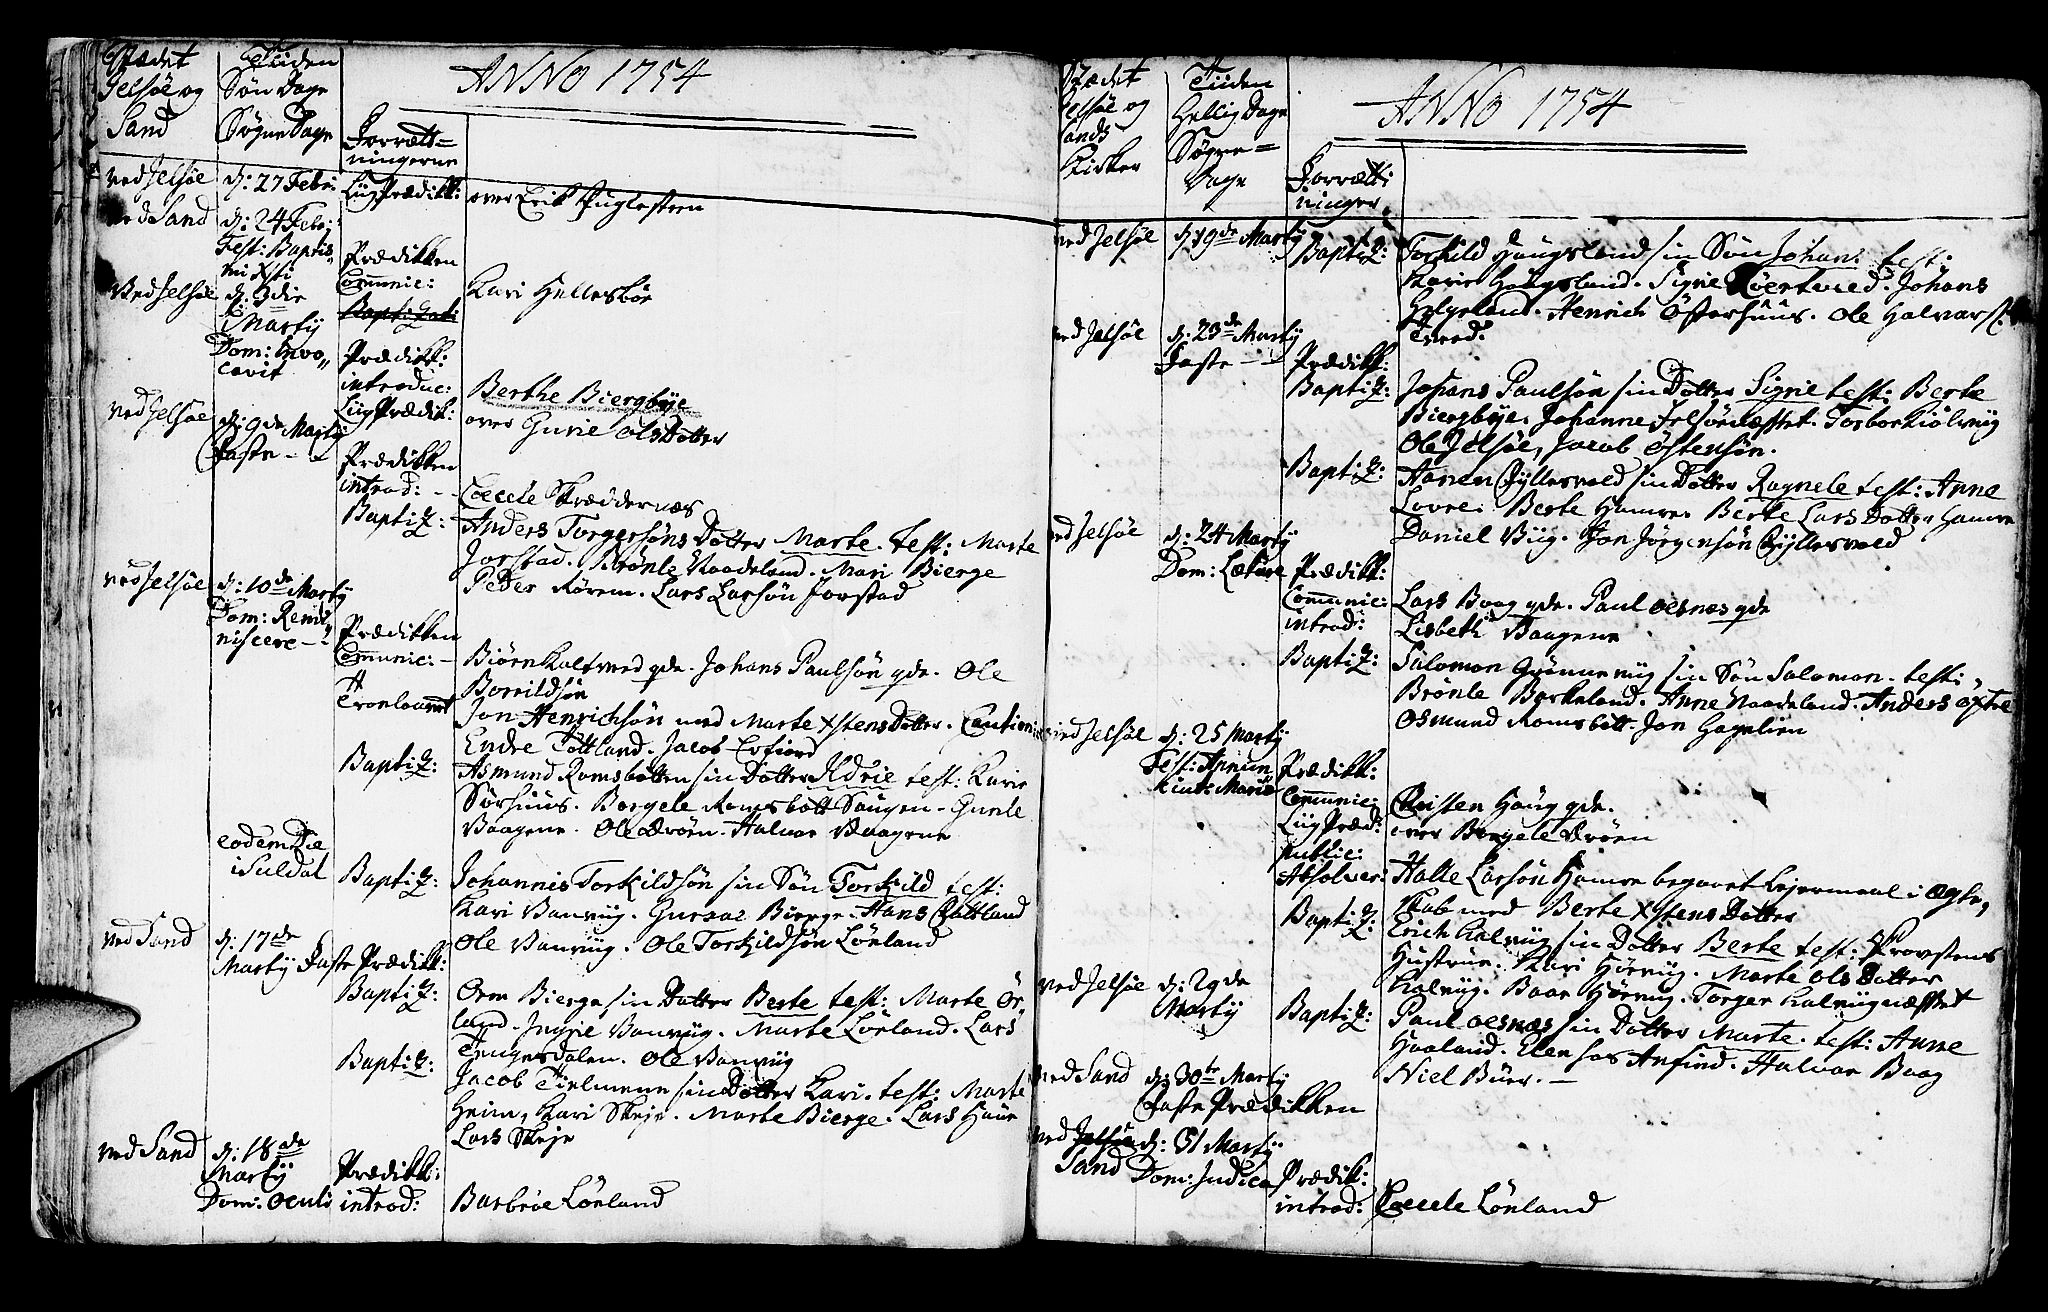 Stædet
Jelsøe og
Sand
Tiiden
Søn Dage
Søgne Dage
Forrætt=
ningerne
ANNO 1754
ved Jelsøe d: 27 Febr: Liig Prædik: over Erik Fuglesteen
ved Sand d: 24 Febr:
Fest: Baptis
mi Xsti
Prædikken
Communic: Kari Hellesbøe
Ved Jelsøe d: 3die
Marty
Dom: Invo
cavit
Prædikk:
introduc: Berthe Biergbÿe
Liig Prædik: over Gurie Olsdotter
ved Jelsøe d: 9de Marty
Faste
Prædikken
introd: Cecele Skræddernæs
Baptiz: Anders Torgersøns Dotter Marte. test: Marte
Jorstad. Brønle Naadeland. Mari Bierge
Peder Rørem. Lars Larsøn Jorstad
ved Jelsøe d: 10de Marty
Dom: Remi
niscere
Prædikken
Communic: Biørn Kaltved gde. Johans Paulsøn gde. Ole
Boreildsøn
Troeloauet Jon Henrichsøn med Marte Xstens Dotter. Caution:
Endre Tøttland. Jacob Erfiord
Baptiz: Asmund Romsbotten sin Dotter Udrie test: Karie
Sørhuus. Borgele Romsbott Saugen. Gunle
Vaagene. Ole Ærøen. Halvar Vaagene
eodem Die
i Suldal
Baptiz: Johannis Torkildsøn sin Søn Torkild test:
Kari Vanviig. Guroe Bierge. Hans Qvaltland
Ole Vanviig. Ole Torkildsøn Lønland
ved Sand d: 17de
Marty Faste Prædikk:
Baptiz: Orm Bierge sin Dotter Berte test: Marte Ør
land. Ingrie Vanviig. Marte Lønland. Lars
Tengesdalen. Ole Vanviig
Baptiz: Jacob Tielmene sin Dotter Kari. test: Marte
Heim, Kari Skeje. Marte Bierge. Lars Haue
Lars Skeje
ved Sand d: 18de
Marty
Dom: Oculi
Prædikk:
introd: Barbroe Lønland
Stædet
Jelsøe og
Sands
Kirker
Tiiden
Hellig Dage
Søgne=
Dage
Forrætt
ninger
ANNO 1754
ved Jelsøe d: 19de Marty Baptiz: Torkild Haugsland sin Søn Johans test:
Karie Haugsland. Signe Qvertved. Johans
Helgeland. Henrich Østerhuus. Ole Halvars.
Tved.
ved Jelsøe d: 23de Marty
Faste
Prædikk:
Baptiz: Johans Paulsøn sin Dotter Signe test: Berte
Biergbÿe. Johanne Jelsøenæsset. Torbor Kiølviig
Ole Jelsøe, Jacob Østensøn.
Baptiz: Hanen Gyllesvold sin Dotter Ragnele test: Anne
Lovre. Berte Hamre. Berte Lars Dotter Hamre
Daniel Viig. Jon Jørgensøn Gyllesvold
ved Jelsøe d: 24 Marty
Dom: Lætare Prædikk:
Communic: Lars Vaag gde. Paul Oesnæs gde
introd: Lisbeth Vaagene
Baptiz: Salomon Grønneviig sin Søn Salomon. test:
Brønle Børkeland. Anne Naadeland. Anders Øxtre
Osmund Romsbott. Jon Hagelien
ved Jelsøe d: 25 Marty
Fest: Annun
tiat: Mariæ
Prædikk:
Communic: Christen Haug gde.
Liig Præd: over Borgele Ærøen
public:
Absolver: Halte Larsøn Hamre begaaet Lejermaal i Ægte
skab med Berte Xstens Dotter
Baptiz: Erich Kalviig sin Dotter Berte test: Provstens
Hustrue. Kari Hørviig. Marte Ols Dotter
Kalviig. Baar Hørviig. Torger Kalviignæsset
ved Jelsøe d: 29de
Marty
Baptiz: Paul Oesnæs sin Dotter Marte. test: Anne
Haaland. Elen hos Anfind. Halvar Vaag
Niel Büer.
ved Sand d: 30te Marty
Faste Prædikken
ved Jelsøe d: 31 Marty
Sand Dom: Judica Prædik:
introd: Cecele Lønland